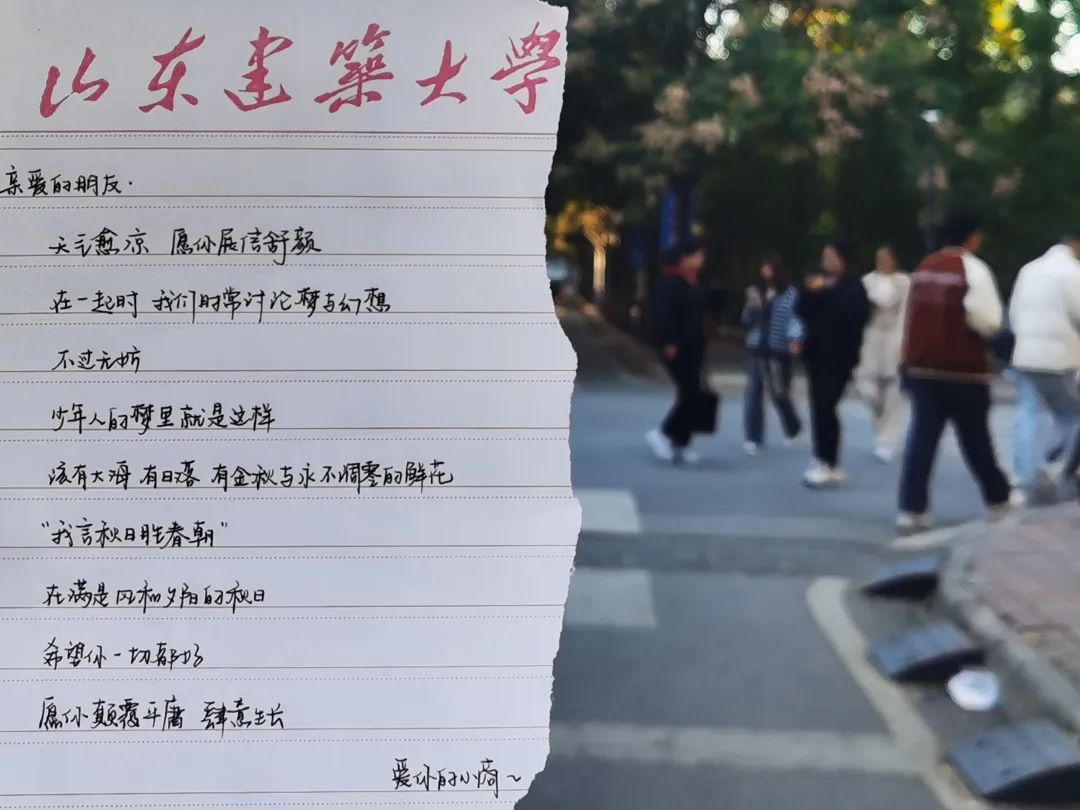 山东建築大學
亲爱的朋友.
天气愈凉 愿你展信舒颜
在一起时 我们时常讨论梦与幻想
不过无妨
少年人的梦里就是这样
该有大海 有日落 有金秋与永不凋零的鲜花
"我言秋日胜春朝"
在满是风和夕阳的秋日
希望你一切都好
愿你颠覆平庸 肆意生长
爱你的小琦~